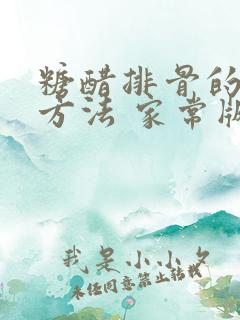 糖醋排骨的
方法 家常版
我是小小夕
未经同意禁止转载